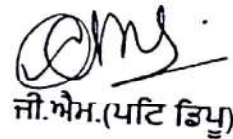 ਜੀ.ਐਮ.(ਪਟਿ ਡਿਪੂ)